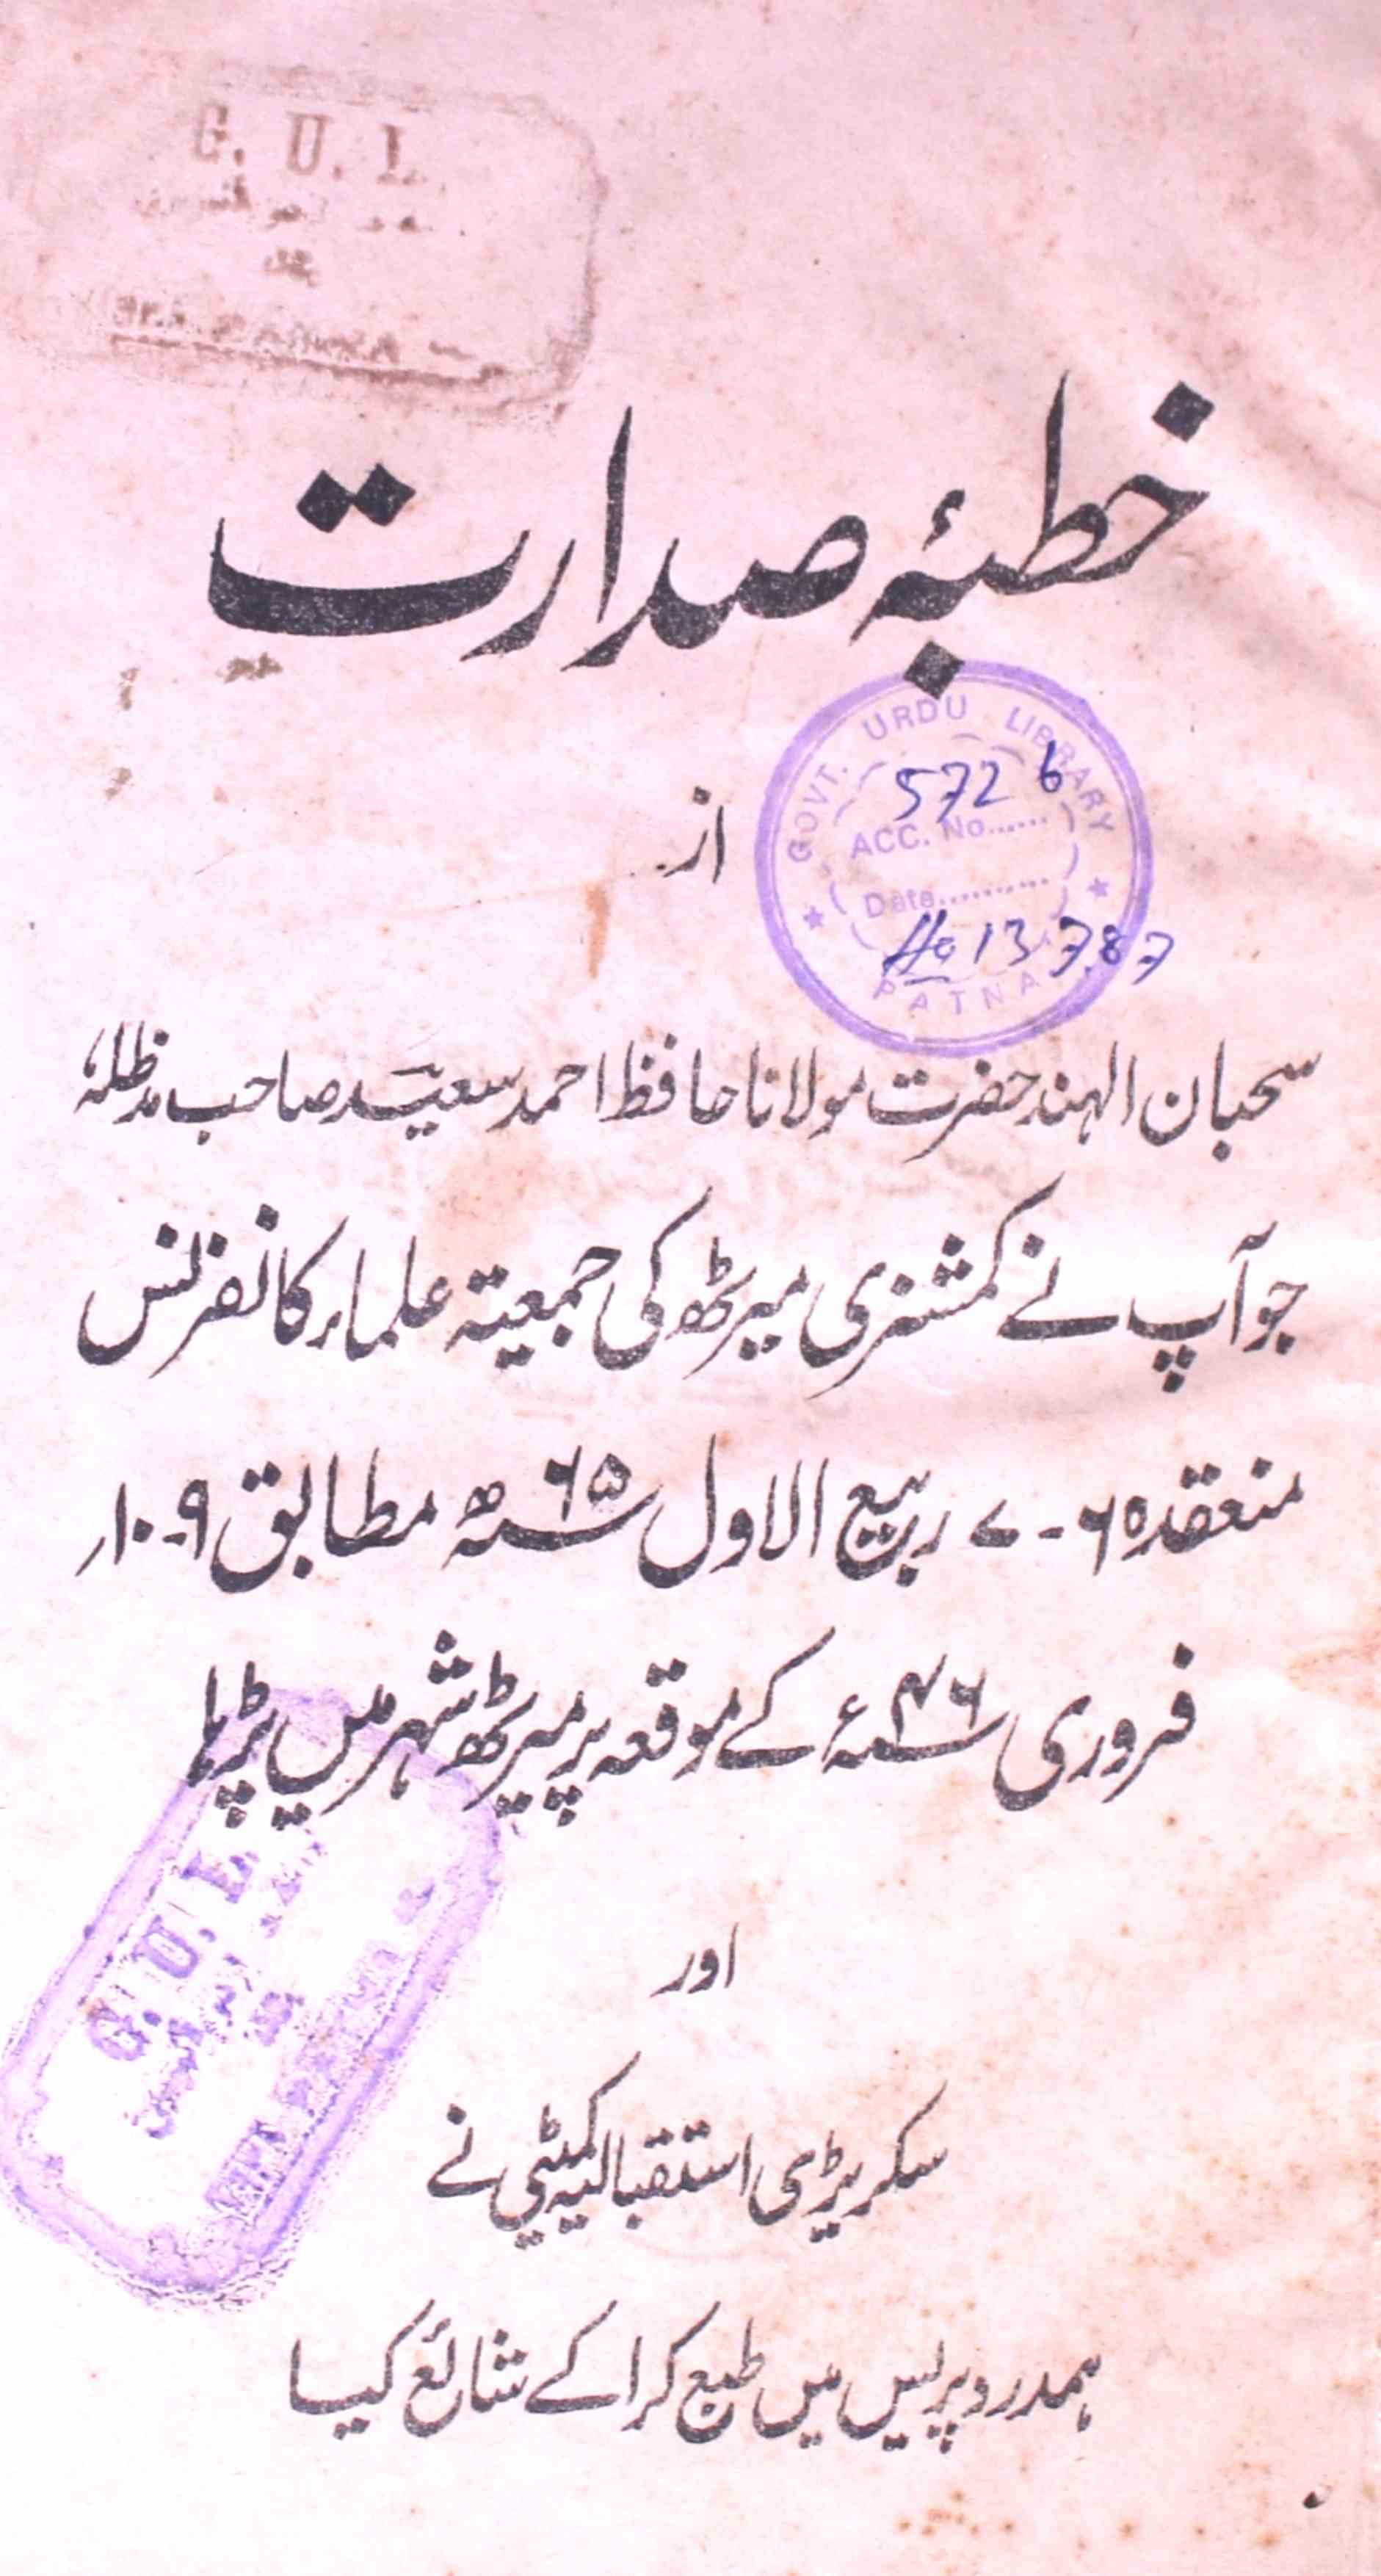 G. U. L.
خطبۂ صدارت
GOVT. URDU LIBRARY
5726
ACC. No......
از
Date...........
13.7.87
PATNA
سحبان الہند حضرت مولانا حافظ احمد سعید صاحب مدظلہٗ
جو آپ نے کمشنری میرٹھ کی جمعیۃ علماء کانفرنس
منعقدہ ۶-۷ ربیع الاول ۶۵ھ مطابق ۹-۱۰؍
فروری ۴۶ء کے موقعہ پر میرٹھ شہر میں پڑہا
اور
G. U. L.
سکریڑی استقبالیہ کمیٹی نے
ہمدرد پریس میں طبع کرا کے شائع کیا